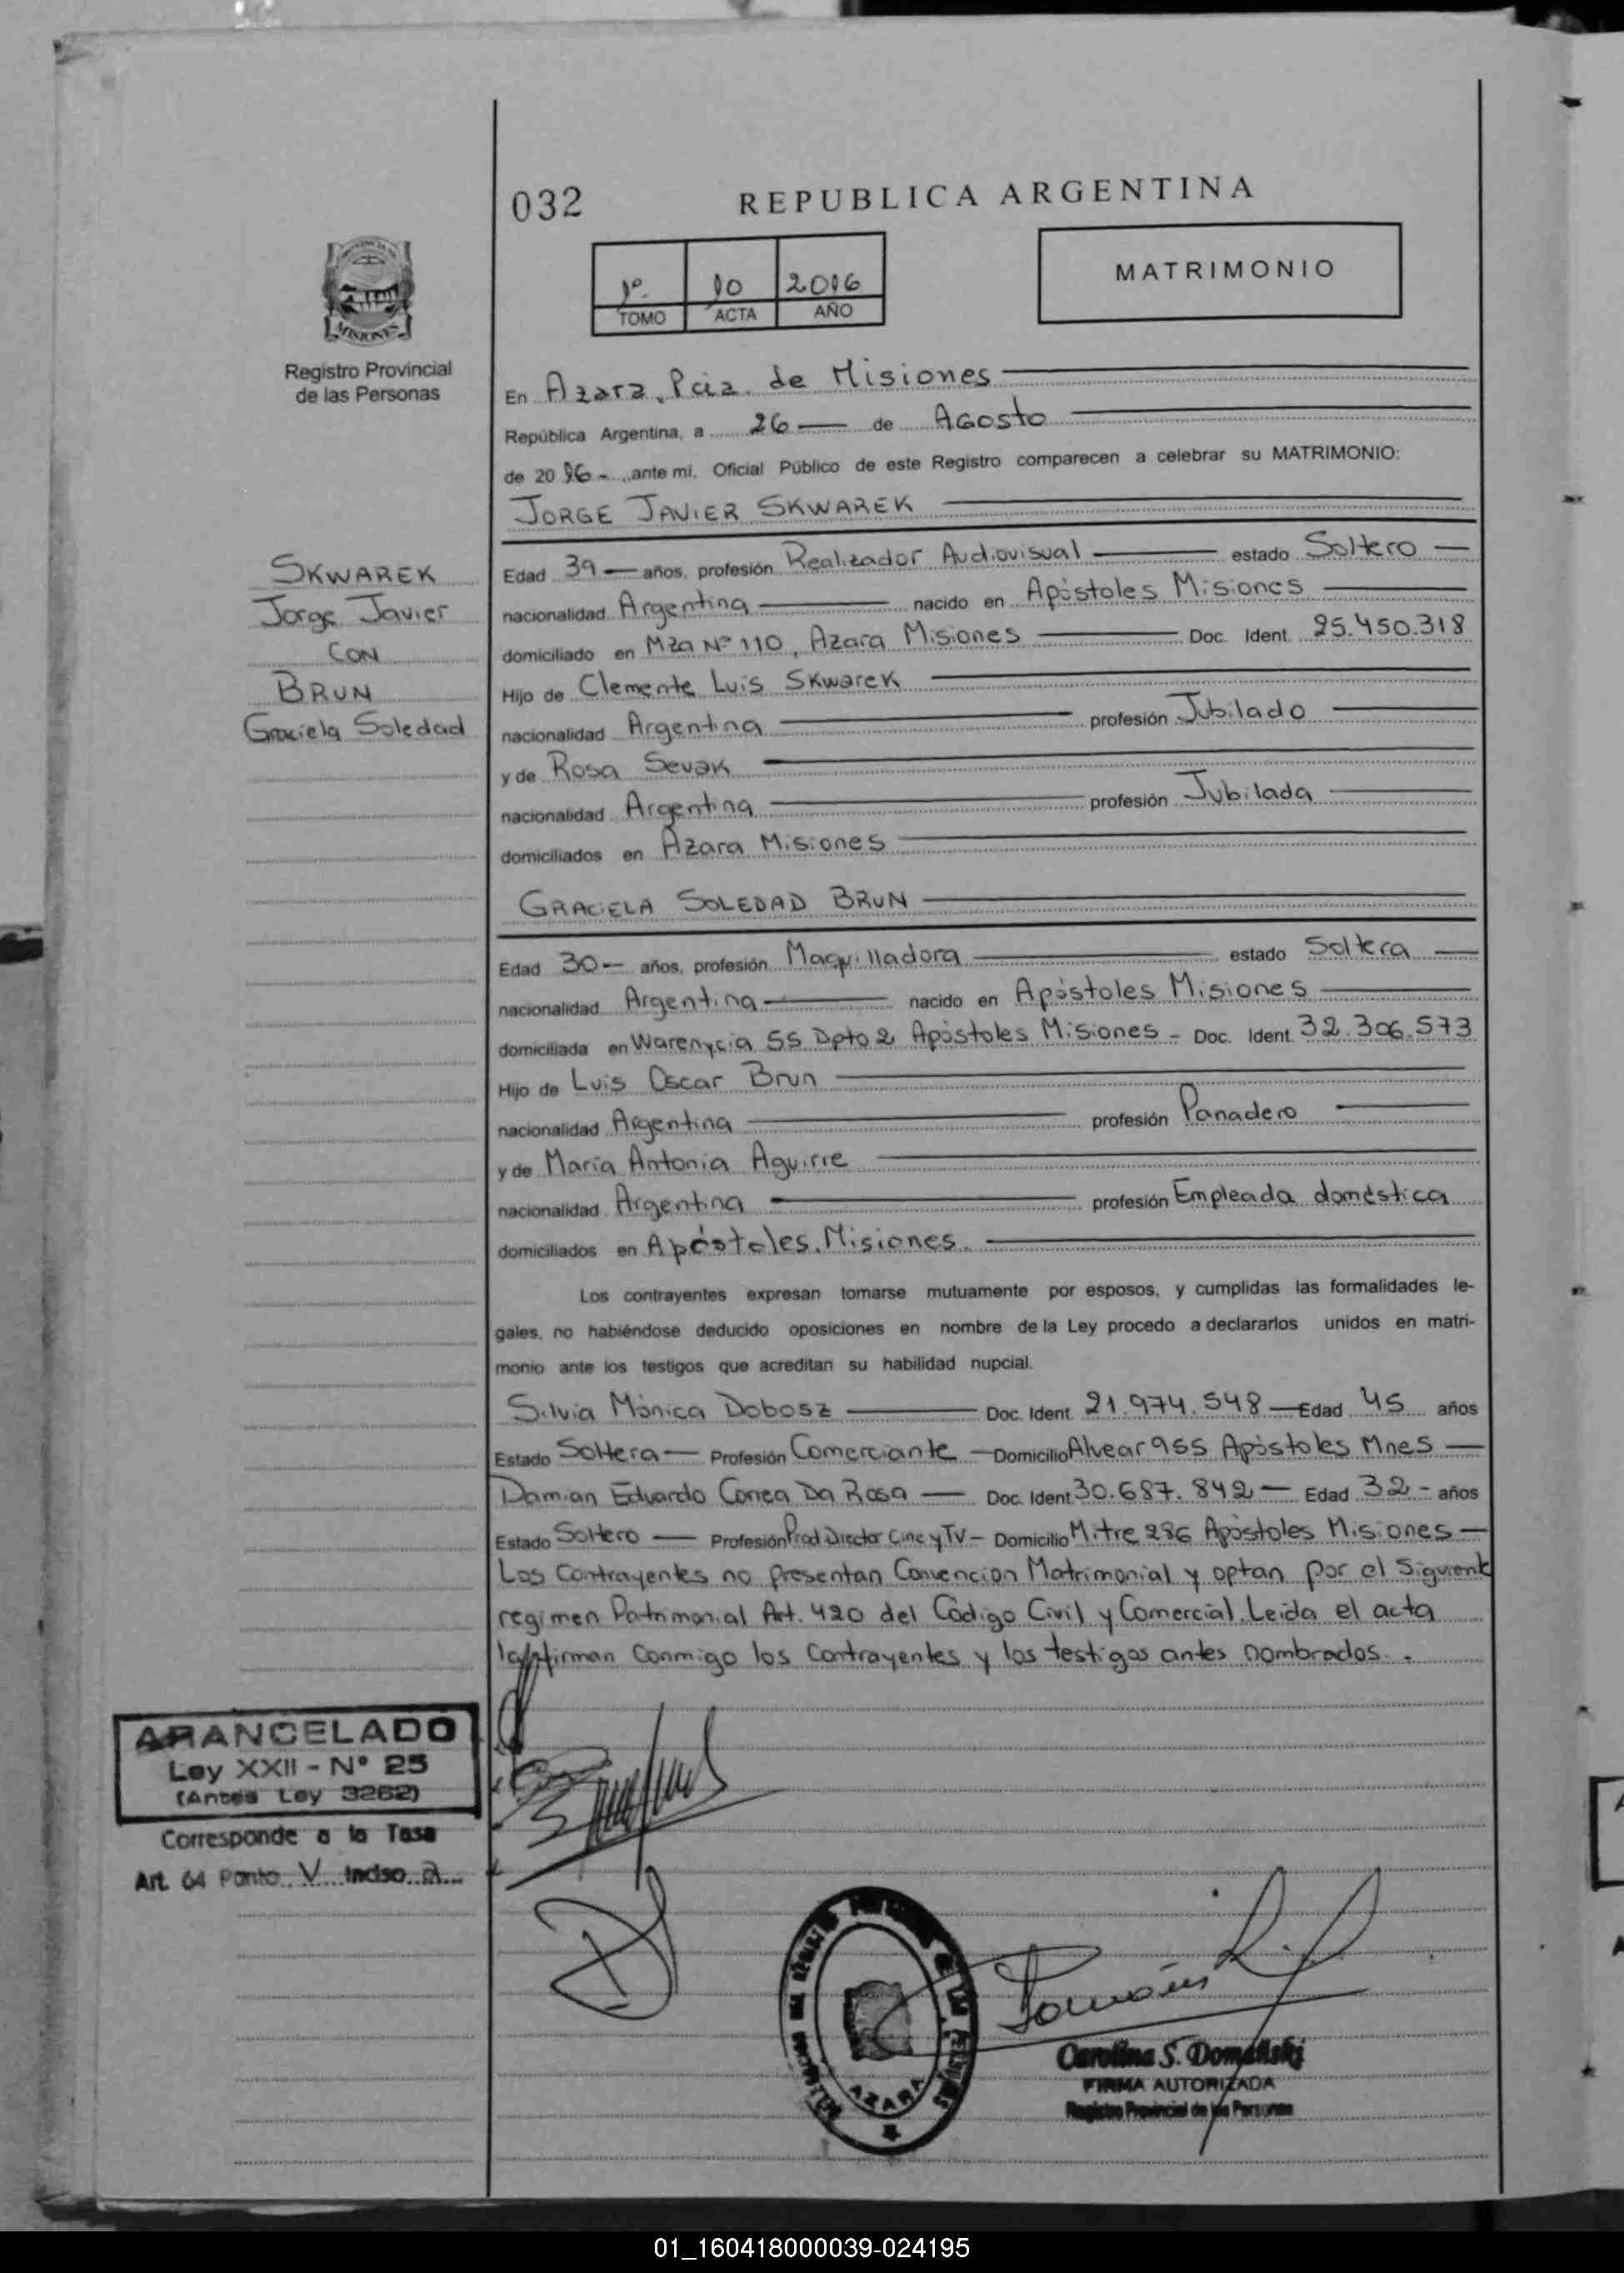 032
REPUBLICA ARGENTINA
1º 10 2016
TOMO ACTA AÑO
MATRIMONIO
MISIONES
Registro Provincial
de las Personas
En Azara, Pcia. de Misiones
República Argentina, a 26 de Agosto
de 2016 - ante mi, Oficial Público de este Registro comparecen a celebrar su MATRIMONIO:
JORGE JAVIER SKWAREK
SKWAREK
Jorge Javier
CON
BRUN
Graciela Soledad
Edad 39 años, profesión Realizador Audiovisual estado Soltero
nacionalidad Argentina nacido en Apóstoles Misiones
domiciliado en Mza Nº 110, Azara Misiones Doc. Ident. 25.450.318
Hijo de Clemente Luis Skwarek
nacionalidad Argentina profesión Jubilado
y de Rosa Sevak
nacionalidad Argentina profesión Jubilada
domiciliados en Azara Misiones
GRACIELA SOLEDAD BRUN
Edad 30 años, profesión Maquilladora estado Soltera
nacionalidad Argentina nacido en Apóstoles Misiones
domiciliada en Warenycia 55 Dpto 2 Apóstoles Misiones - Doc. Ident. 32.306.573
Hijo de Luis Oscar Brun
nacionalidad Argentina profesión Panadero
y de María Antonia Aguirre
nacionalidad Argentina profesión Empleada doméstica
domiciliados en Apóstoles, Misiones.
Los contrayentes expresan tomarse mutuamente por esposos, y cumplidas las formalidades le-
gales, no habiéndose deducido oposiciones en nombre de la Ley procedo a declararlos unidos en matri-
monio ante los testigos que acreditan su habilidad nupcial.
Silvia Mónica Dobosz Doc. Ident. 21.974.548 Edad 45 años
Estado Soltera Profesión Comerciante Domicilio Alvear 955 Apóstoles Mnes
Damian Eduardo Correa Da Rosa Doc. Ident. 30.687.842 Edad 32 - años
Estado Soltero Profesión Prod. Director Cine y TV - Domicilio Mitre 286 Apóstoles Misiones
Los Contrayentes no presentan Convencion Matrimonial y optan por el Siguiente
regimen Patrimonial Art. 420 del Código Civil y Comercial. Leida el acta
la firman conmigo los contrayentes y los testigos antes nombrados.
ARANCELADO
Ley XXII - Nº 25
(Antes Ley 3262)
Corresponde a la Tasa
Art. 64 Punto V Inciso a
AZARA
Carolina S. Domański
FIRMA AUTORIZADA
Registro Provincial de las Personas
01_160418000039-024195